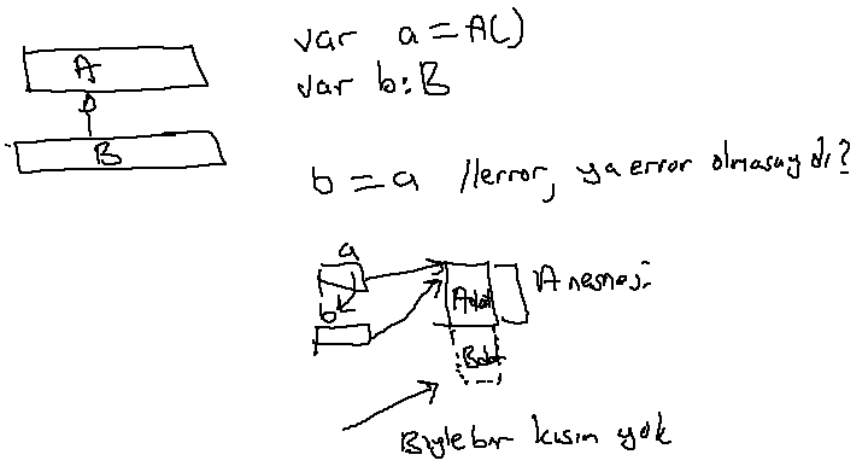 A
B
var a = A()
var b: B
b = a //error, ya error olmasaydı?
a
b
A nesnesi
Böyle bir kısım yok